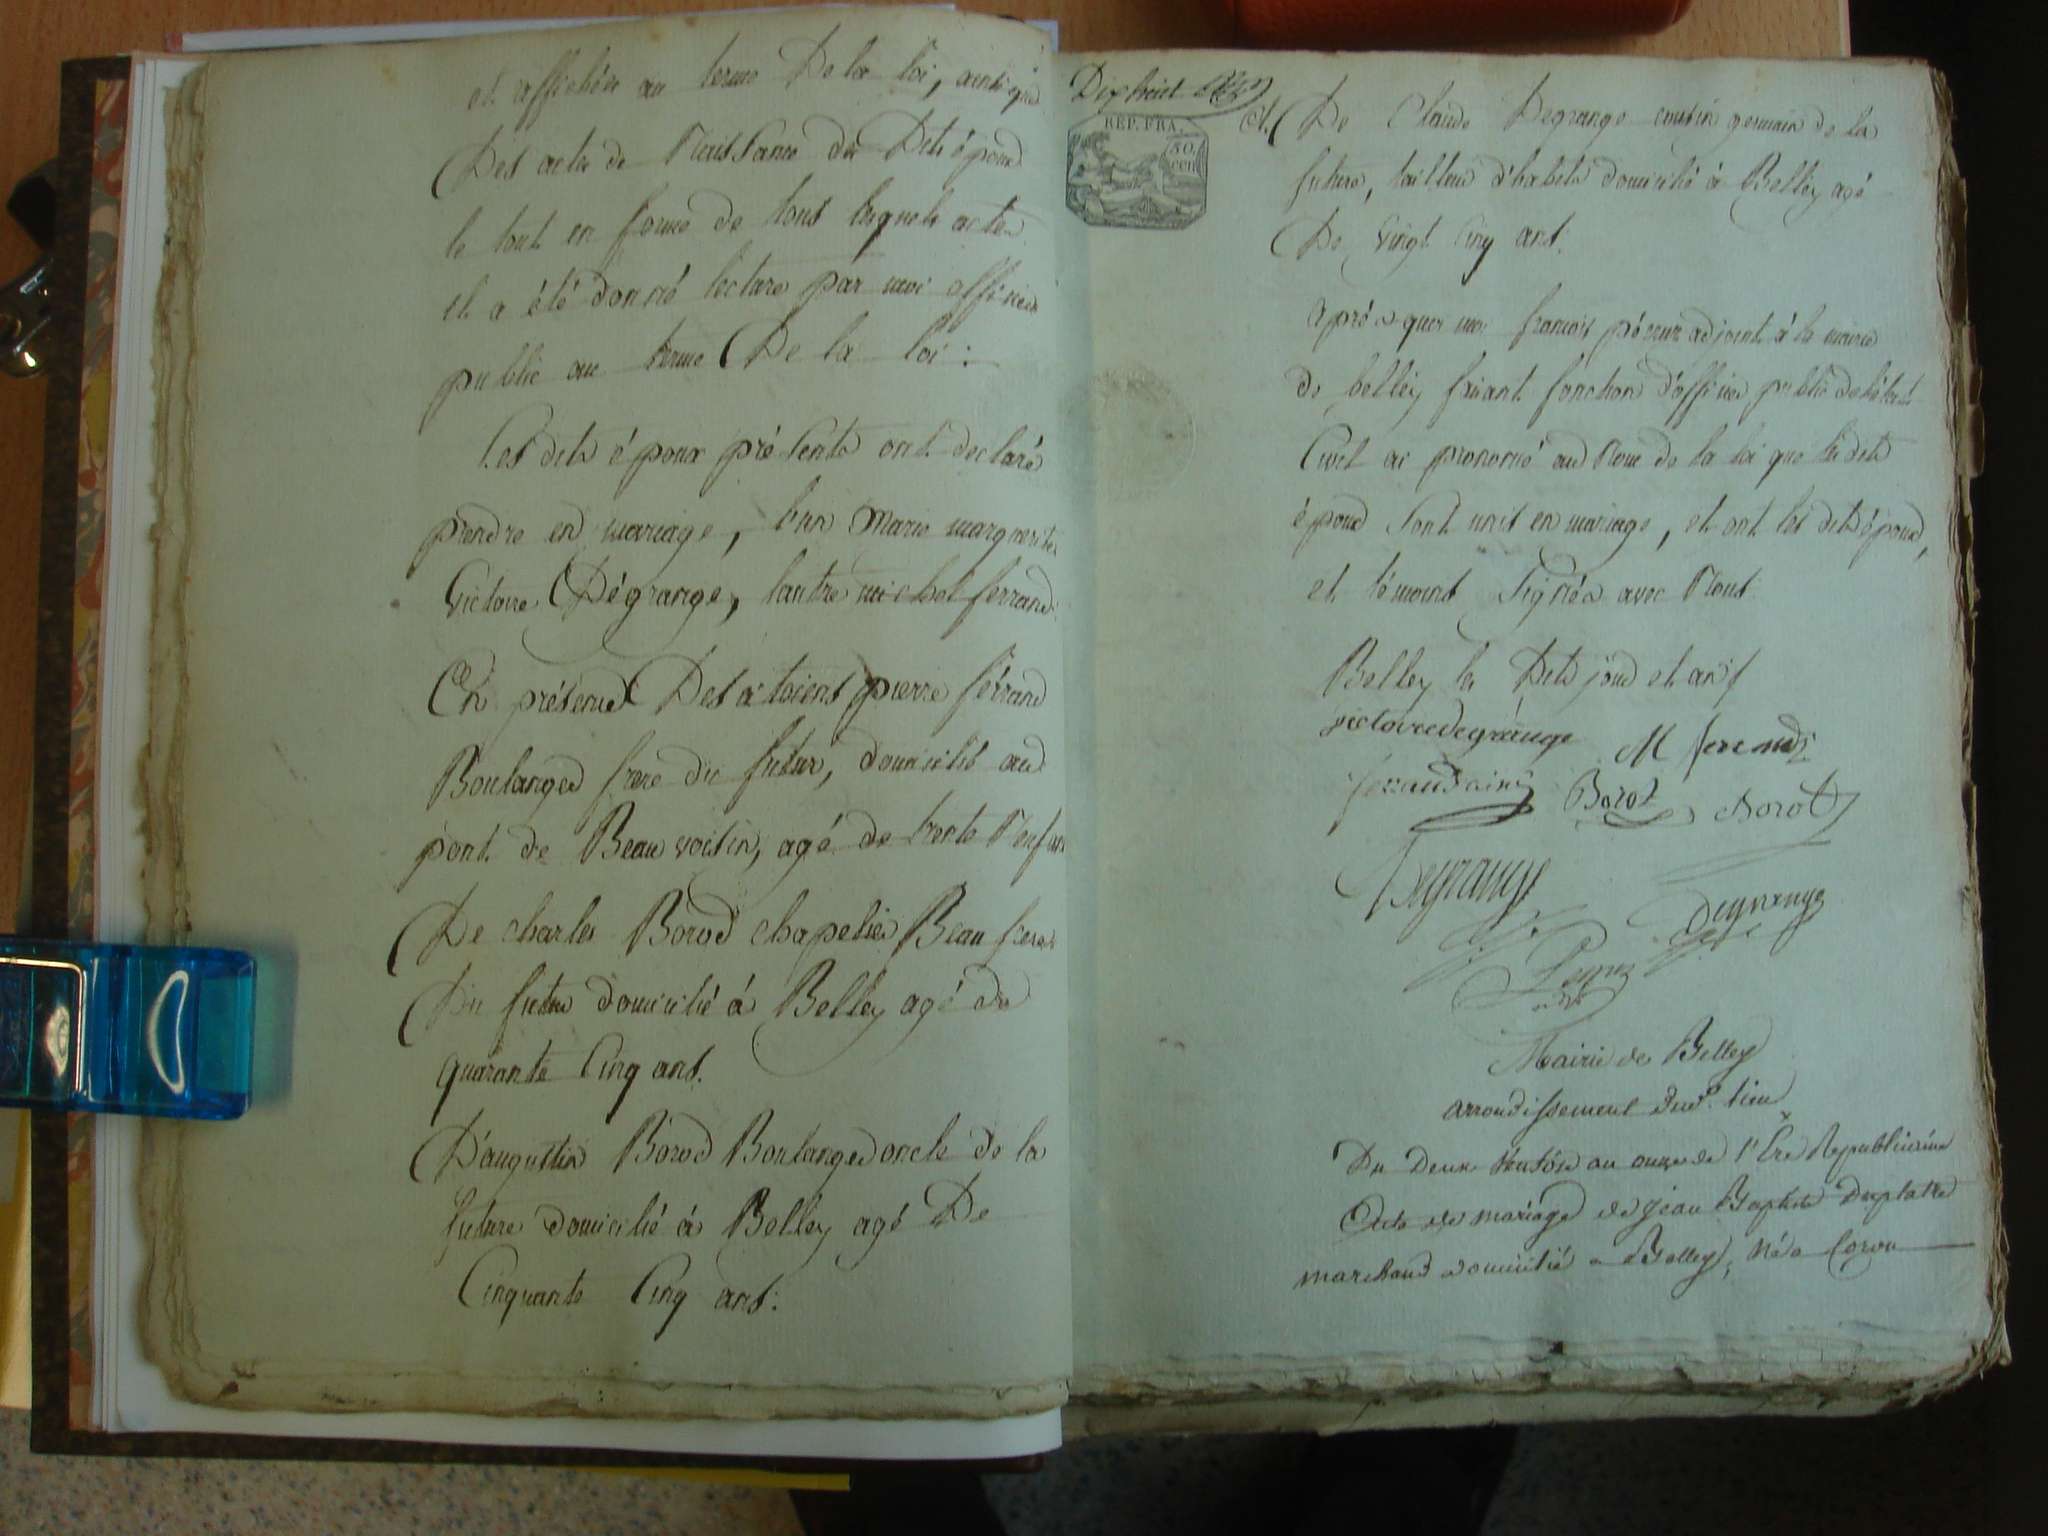 et affichée au terme De la loi, ainsi que
Des actes de Naissance des Dits époux
le tout en forme de tous lesquels actes
il a été donné lecture par moi officier
public au terme De la loi :
Les dits époux présents ont declaré
prendre en mariage, l'un Marie marguerite
Victoire Dégrange, lautre michel ferrand
En présence Des citoiens pierre férrand
Boulanger frere du futur, domicilié au
pont de Beauvoisin, agé de trente Neuf ans
De charles Borod chapelier Beau frere
Du futur domicilié à Belley agé de
quarante Cinq ans.
D'augustin Borod Boulanger oncle de la
future domicilié à Belley agé De
Cinquante Cinq ans.
Dix huit
REP. FRA.
50.
cen
Et De Claude Degrange cousin germain de la
future, tailleur d'habits domicilié à Belley agé
De Vingt Cinq ans.
après quoi moi francois adjoint à la mairie
de belley faisant fonction d'officier public de létat
Civil ai prononcé au Nom de la loi que les dits
époux sont unis en mariage, et ont les dits époux,
et témoins signés avec Nous.
Belley les Dits jour et an
victoire degrange M ferrand
ferrand ainé Borot Borot
Degrange
Degrange
adjt
Mairie de Belley
arrondissement dud. lieu
Du Deux Ventôse an onze de l'Ere Republicaine
Acte de mariage de Jean Baptiste Duplatre
marchand domicilié a Belley, Né a